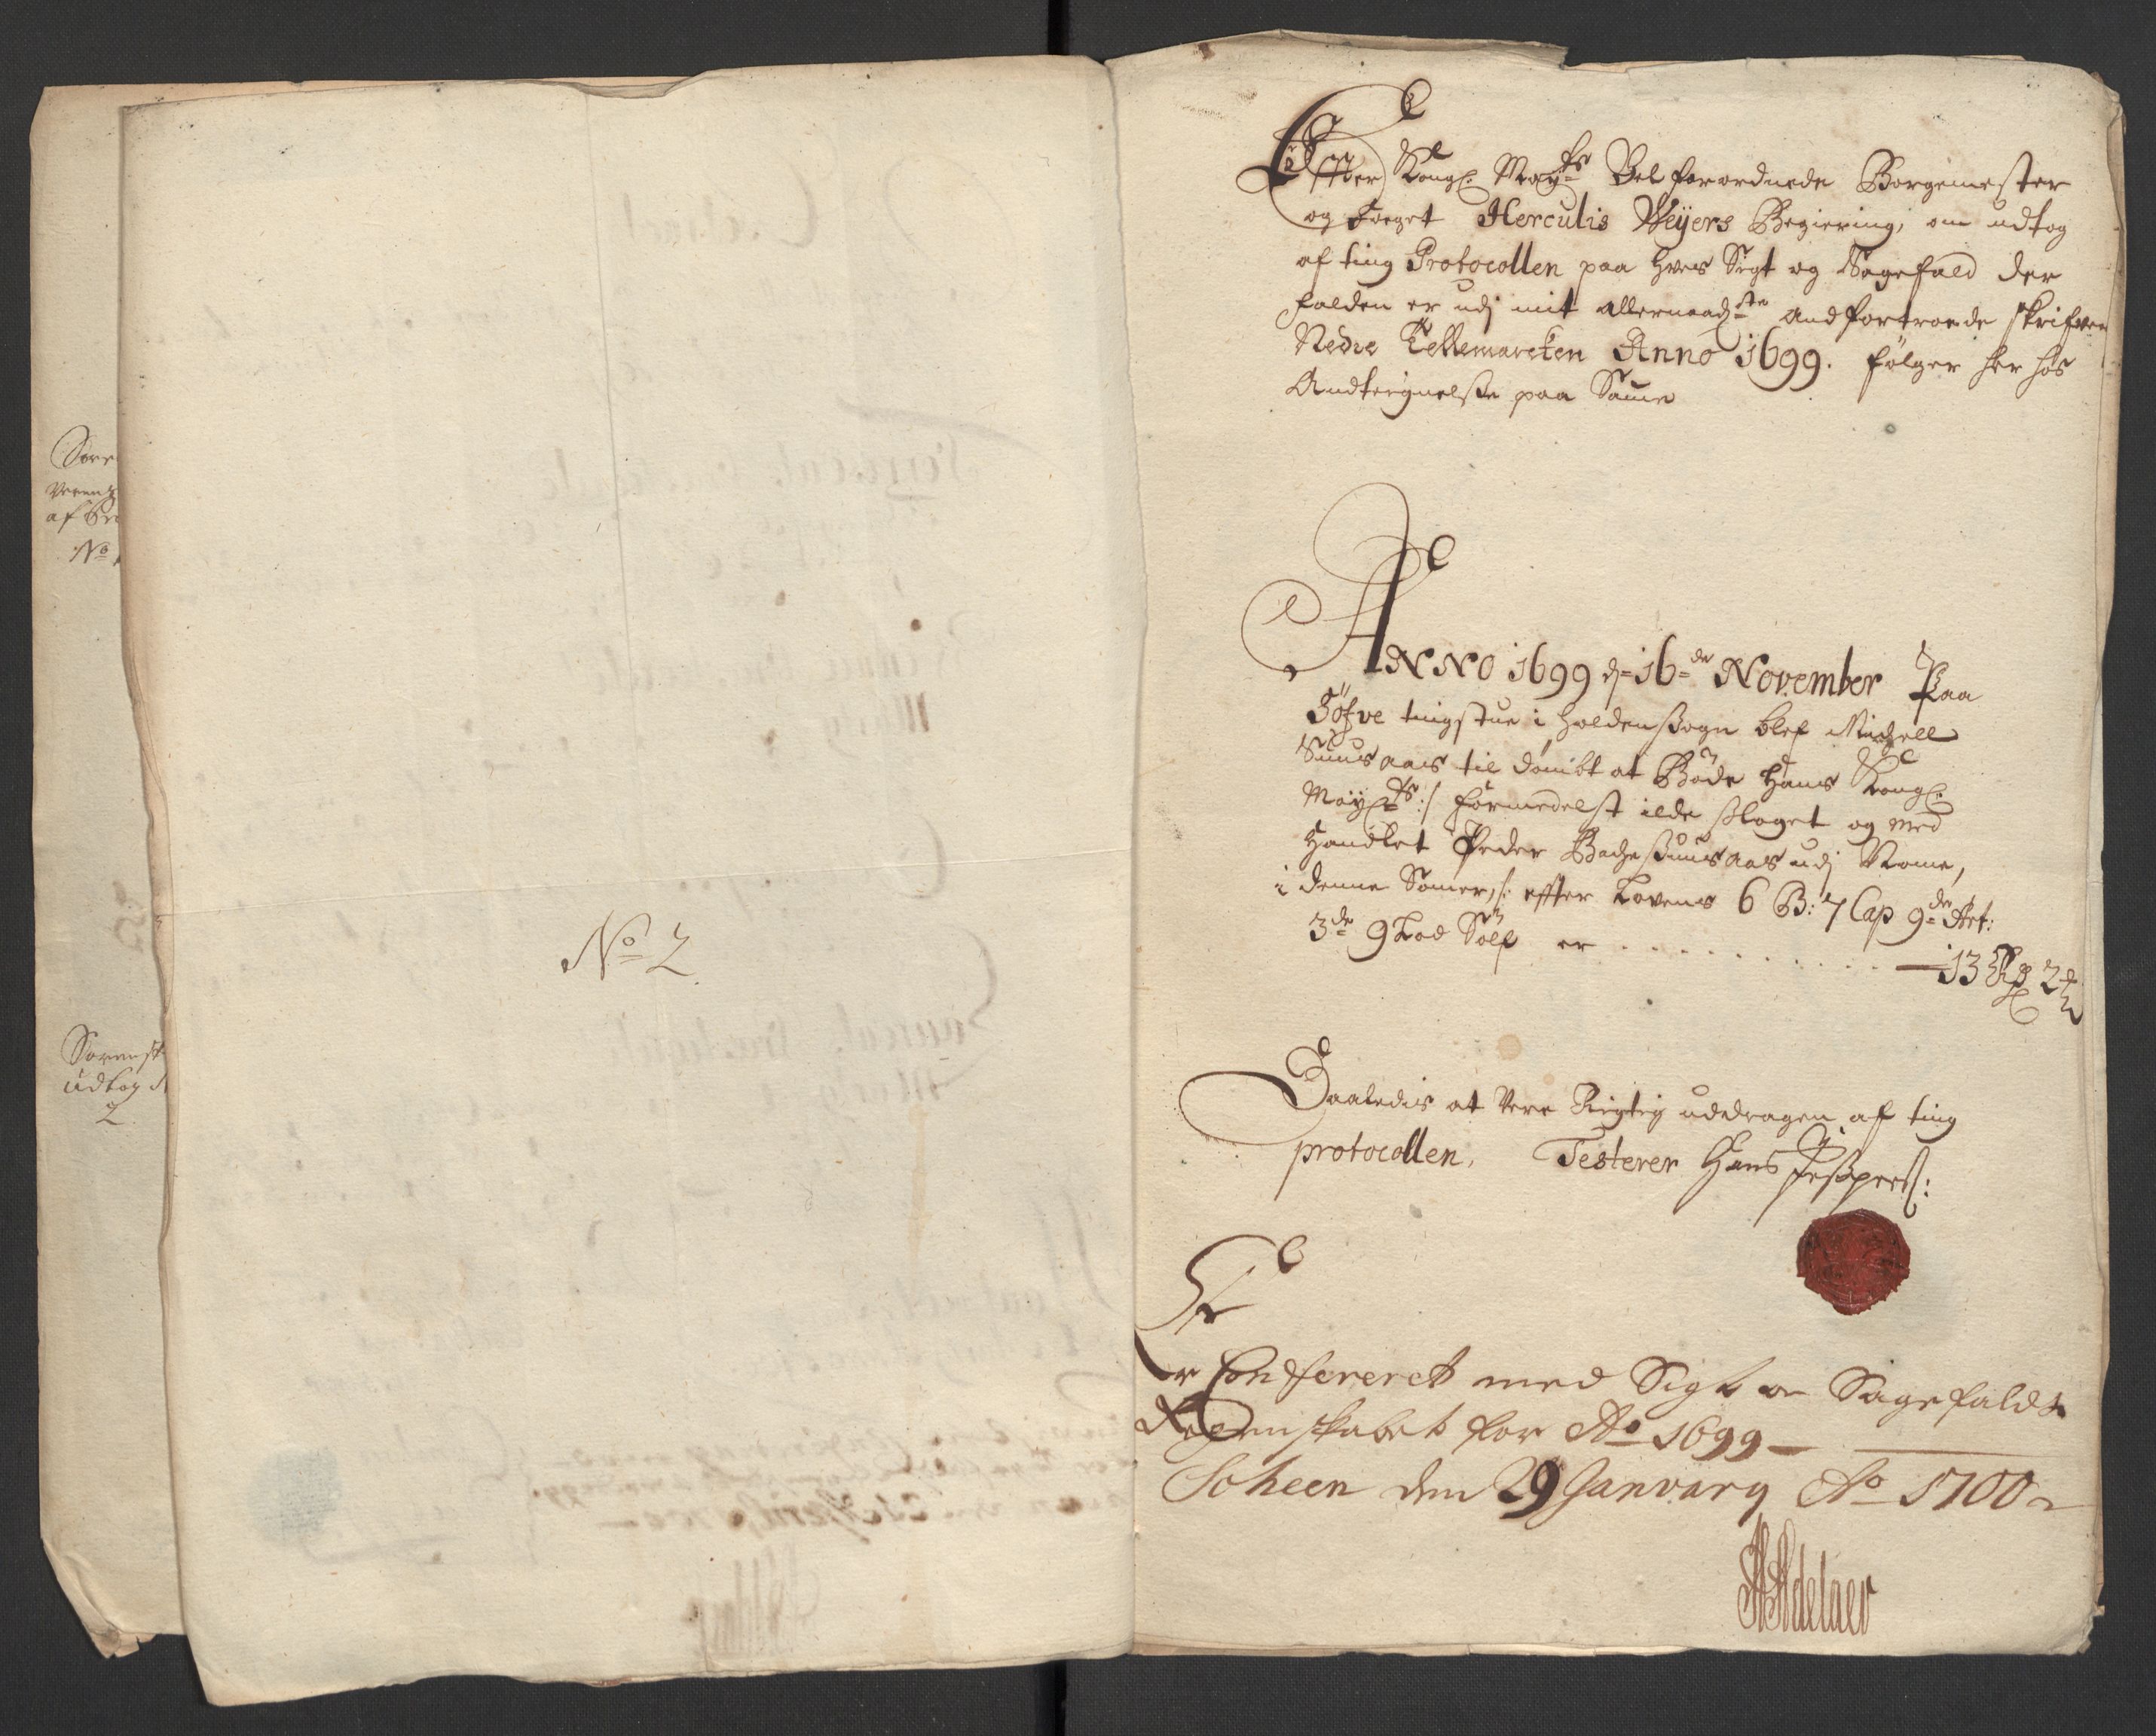 Sore
af
No
No 2
Sorensk
udtog
2
Effter Kongl: Mayts Vel forordnede Borgemester
og foeget Herculis Weyers Begiering, om udtog
af ting Protocollen paa hves Sigt og Sagefald der
falden er udj mit allernaadste andfortroede skrifver
Nedre Tellemarcken Anno 1699. følger her hos
Andteignelsse paa Samme
ANNO 1699 d= 16de November Paa
Tøfve tingstue i holden Sogn blef Michell
Suusaas til dømbt at Bøde Hans Kongl:
Mayts :/ formedelst ilde slaget og med
handlet Peder Bache Suusaas udj
i denne Somer, /: effter Lovens 6 B: 7 Cap 9de Art:
3de 9 Lod Sølf er . . . . . . . . . . 13
Saaledis at Vere Rigtig uddragen af ting
protocollen, Testerer Hans Jesspers:
Er Confereret med Sigt oc Sagefalds
Regenskabet for Ao 1699
Scheen den 29 January Ao 1700
Adelaer